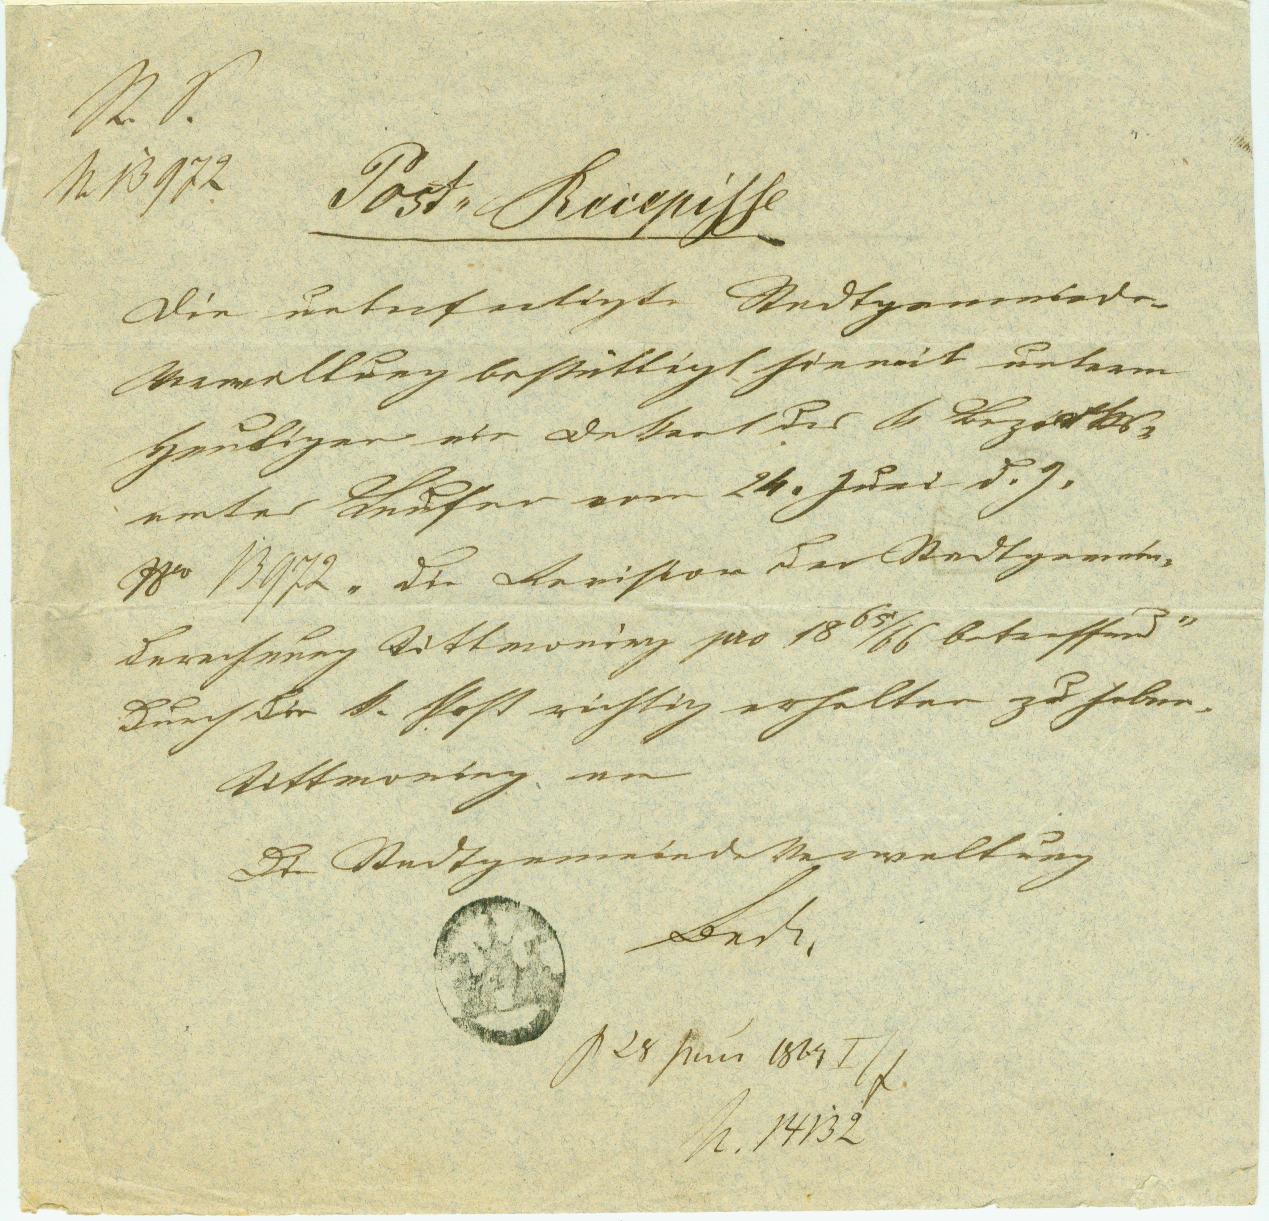 R. S.
N 13972
Post-Recepisse
Die unterfertigte Stadtgemeinde-
Verwaltung bestättigt hiemit unterm
Heutigen ein Dekret des k Bezirks-
amtes Laufen vom 24. Juni d. J.
Nro 13972 " die Revision der Stadtgemein-
derechnung Tittmoning pro 18 65/66 betreffend"
durch die k. Post richtig erhalten zu haben.
Tittmoning am
Die Stadtgemeinde Verwaltung
28 Juni
N. 14132